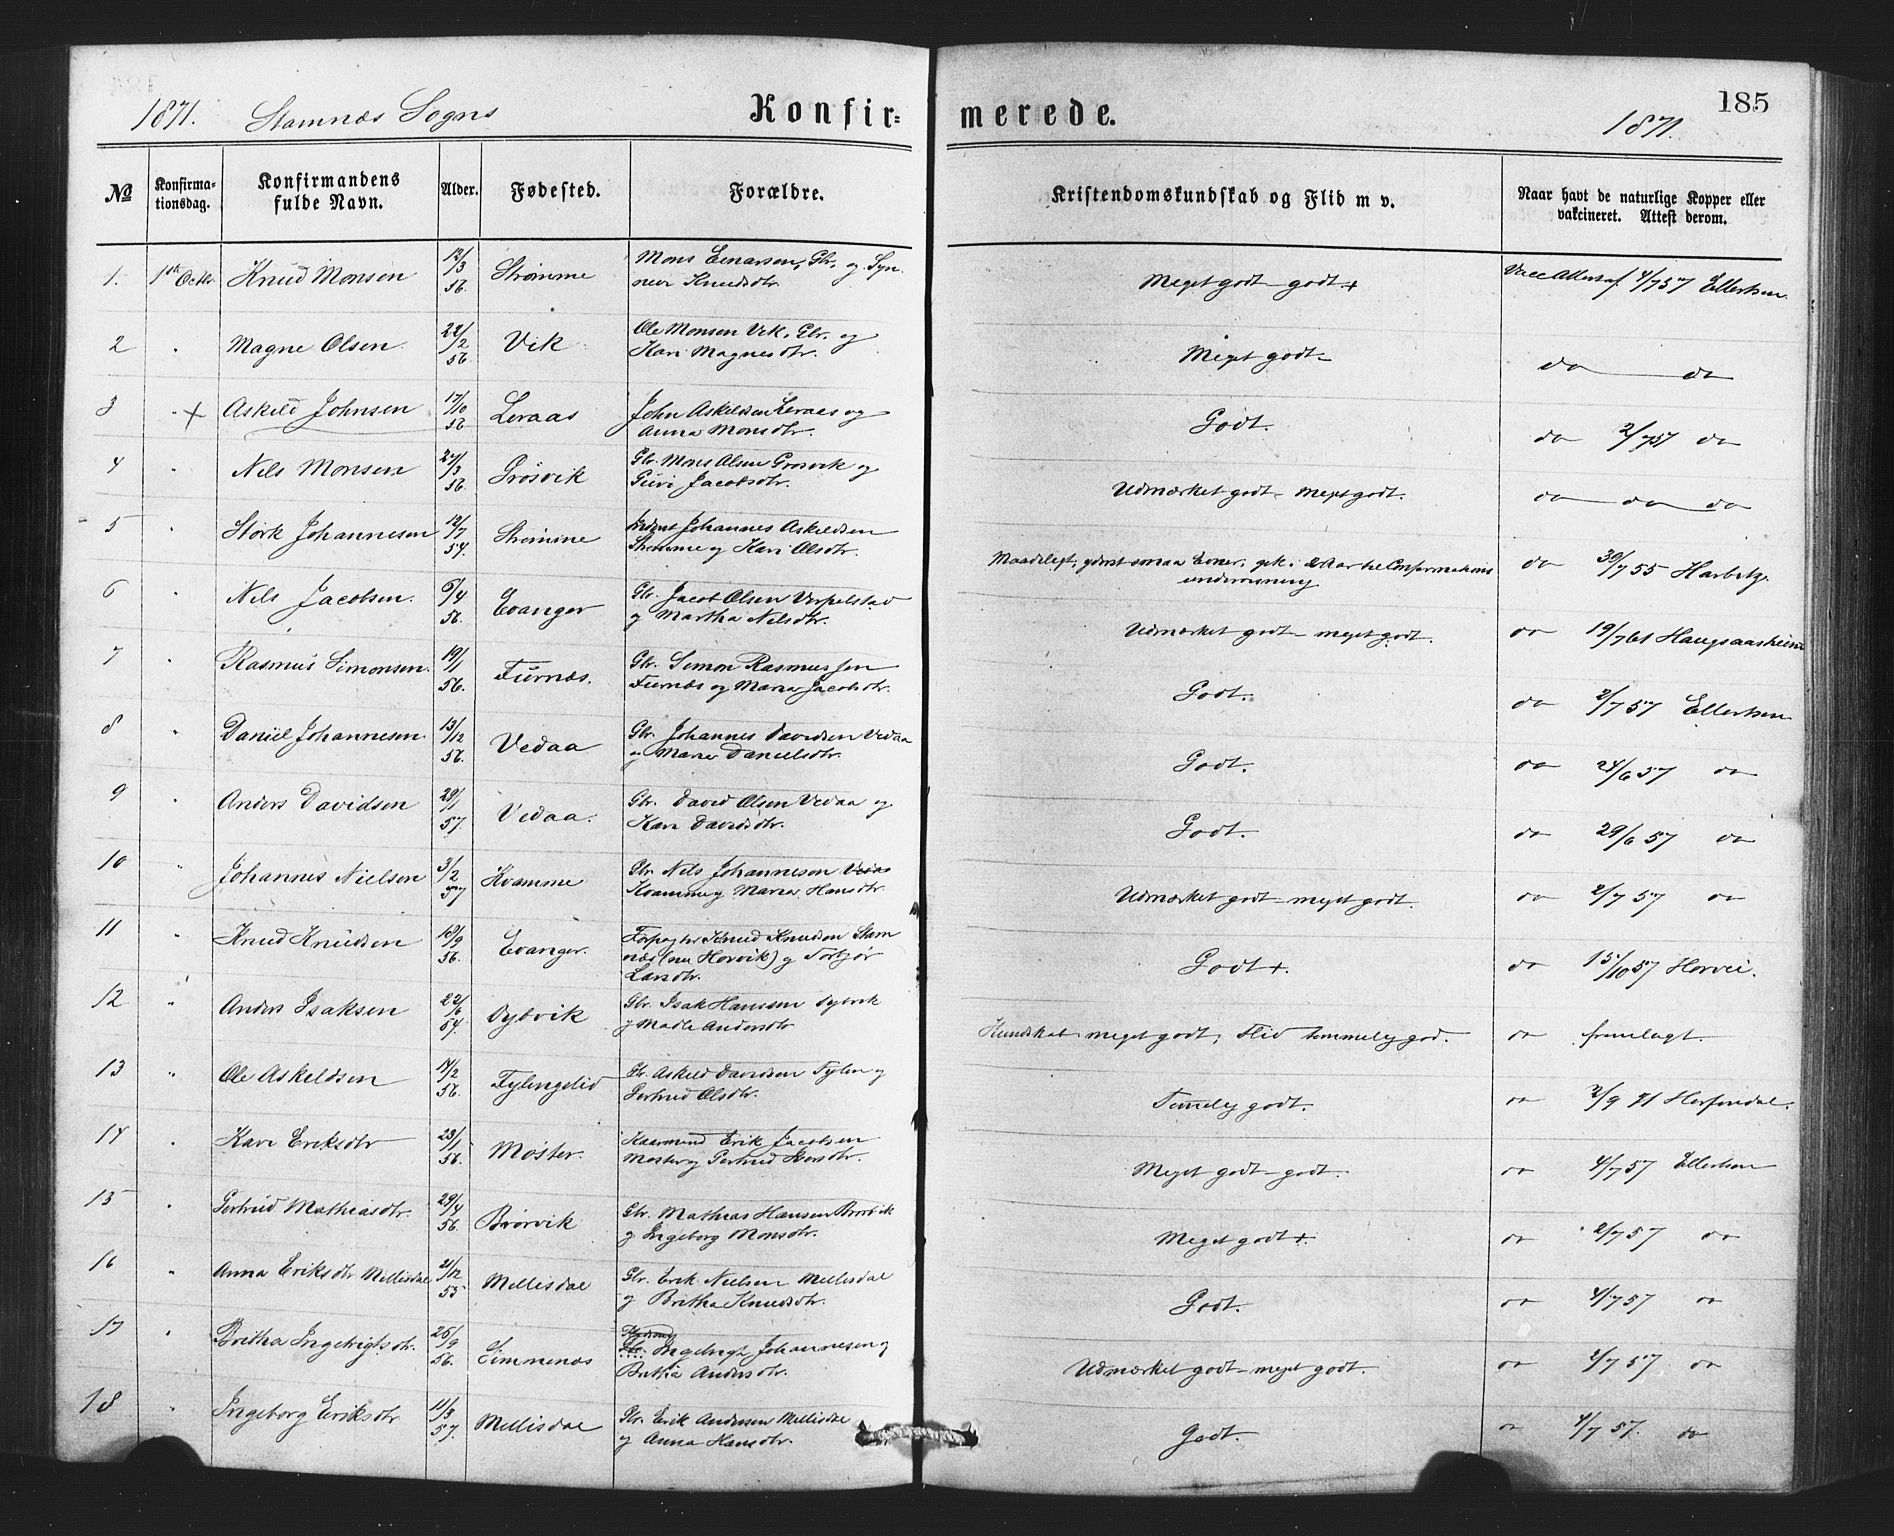 185
1871. Stamnæs Sogns Konfir= merede. 1871.
No Konfirma-tionsdag. Konfirmandens fulde Navn. Alder. Fødested. Forældre. Kristendomskundskab og Flid m v. Naar havt de naturlige Kopper eller vakcineret. Attest derom.
1. 1ste Octbr Knud Monsen 12/3 56. Strømme Mons Einarsen, Gbr. og Syn-
nevr Knudsdtr. Meget godt - godt + Vacc Attest af 4/7 57 Ellertsen
2 " Magne Olsen 22/2 56. Vik Ole Monsen Vik, Gbr. og
Kari Magnesdtr. Meget godt - do do
3 " + Askild Johnsen 17/10 56 Leraas John Askildsen Leraas og
Anna Monsdtr. Godt. do 2/7 57 do
4 " Nils Monsen 24/3 56. Grøsvik Gbr. Mons Olsen Grøsvik og
Guri Jacobsdtr. Udmærket godt - meget godt. do do do
5 " Størk Johannesen 12/7 54. Strømme Johannes Askildsen
Strømme og Kari Olsdtr. Maadeligt, Evner, til Confirmations
undervisning do 30/7 55 Harbitz
6 " Nils Jacobsen 6/4 56. Evanger Gbr. Jacob Olsen
og Martha Nilsdtr. Udmærket godt - meget godt. do 19/7 61
7 " Rasmus Simonsen 19/1 56. Furnæs. Gbr. Simon Rasmussen
Furnæs og Marta Jacobsdtr. Godt. do 2/7 57 Ellertsen
8 " Daniel Johannesen 13/12 56. Vedaa Gbr. Johannes Davidsen Vedaa
og Danielsdtr. Godt. do 24/6 57 do
9 " Anders Davidsen 29/1 57. Vedaa. Gbr. David Olsen Vedaa og
Kari Davidsdtr. Godt. do 29/6 57 do
10 " Johannes Nielsen 3/2 57 Kvamme Gbr. Nils Johannesen
Kvamme og Hansdtr. Udmærket godt - meget godt. do 2/7 57 do
11 " Knud Knudsen 18/9 56. Evanger. Forpagter Knud Knudsen Stam
næs (nu Horvik) og Torbjør
Larsdtr. Godt +. do 15/10 57 Horvei.
12 " Anders Isaksen 22/6 54. Dybvik Gbr. Isak Hansen Dybvik
og Madle Andersdtr Kundskab meget godt, Flid temmelig god. do fremlagt.
13 " Ole Askildsen 17/2 56. Fylingslid Gbr. Askild Davidsen og
Gertrud Olsdtr. Temmelig godt. do 2/9 71 Herfindal.
14 " Kari Eriksdtr 23/1 56. Møster. Kaarmand Erik Jacobsen
Møster og Gertrud Meget godt - godt. do 4/7 57 Ellertsen
15 " Gertrud Mathiasdtr. 29/4 56. Brørvik Gbr. Mathias Hansen Brørvik
og Ingeborg Monsdtr. Meget godt +. do 2/7 57 do
16 " Anna Eriksdtr Millisdal 21/12 55 Millisdal Gbr. Erik Nielsen Millisdal
og Britha Knudsdtr. Godt. do 4/7 57 do
17 " Britha Ingebrigtsdtr. 26/9 56. Simmenæs Ingebrigt Johannesen og
Britha Andersdtr. Udmærket godt - meget godt. do 2/7 57 do
18 " Ingeborg Eriksdtr 11/3 57. Millisdal Gbr. Erik Andersen Millisdal
og Anna Hansdtr. Godt. do 4/7 57. do